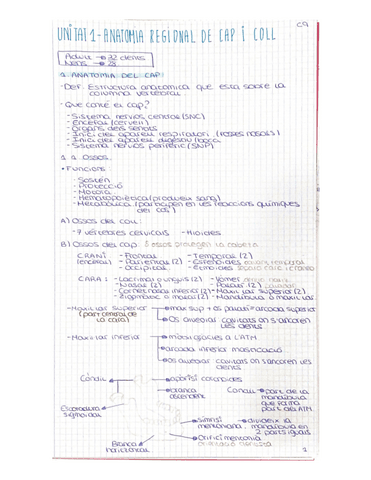 C9
UNITAT 1 - ANATOMIA REGIONAL DE CAP I COLL
Adult → 32 dents
Nens → 28
1. ANATOMIA DEL CAP:
- Def: Estructura anatòmica que està sobre la
columna vertebral.
- Què conté el cap?
- Sistema nerviós central (SNC)
- Encèfal (cervell)
- Òrgans dels sentits
- Inici del aparell respiratori (fosses nasals)
- Inici del aparell digestiu (boca)
- Sistema nerviós perifèric (SNP)
1.1. Ossos:
• Funcions:
- Sostén
- Protecció
- Motora
- Hematopoiètica (produeix sang)
- Metabòlica (participen en les reaccions químiques
del cos)
A) Ossos del coll:
- 7 vèrtebres cervicals - Hioides
B) Ossos del cap: 8 ossos protegeixen la cabeza
CRANI - Frontal - Temporals (2)
(encefal) - Parietals (2) - Esfenoides
- Occipital - Etmoides
CARA: - Lacrimal o unguis (2) - Vomer
- Nasals (2) - Palatars (2)
- Cornet nasal inferior (2) - Maxil·lar superior (2)
- Zigomàtic o molars (2) - Mandíbula o maxil·lar
- Maxil·lar superior → max sup + os palatí = arcada superior
(part central de
la cara) → Os alveolar cavitats on s'ancoren
les dents
- Maxil·lar inferior → a l'ATM
→ arcada inferior masticació
→ os alveolar cavitats on s'ancoren les
dents
Còndil
apòfisi coronoides
branca
ascendent
Còndil → part de la
mandíbula
que forma
part de ATM
Escotadura
sigmoidea
símfisi
mentoniana → divideix la
mandíbula en
2 parts iguals
Orifici mentonià
Branca
horitzontal
1